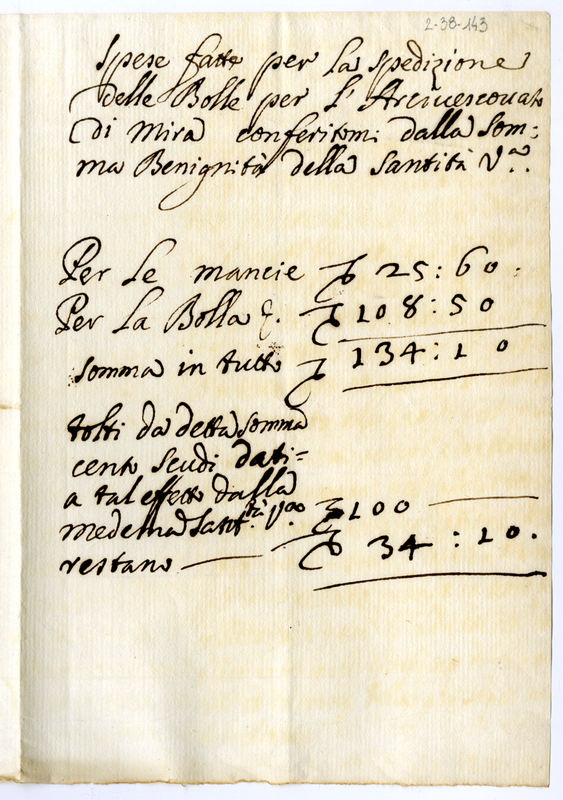 2-38-143
Spese fatte per la spedizione
delle Bolle per l'Arciuescouato
di Mira conferitomi dalla Som=
ma Benignità della Santità Vra.
Per le mancie 25:60.
Per la Bolla 108:50
somma in tutto 134:10
tolti da detta somma
cento scudi dati=
a tal effetto dalla
medema Santtà Vra. 100
restano 34:10.